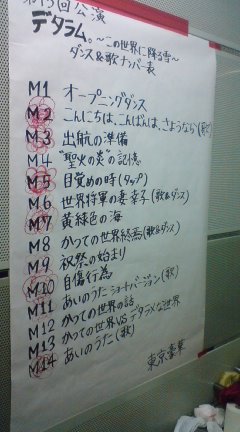 第13回公演
デタラム。〜この世界に降る雪〜
ダンス&歌ナンバー表
M1 オープニングダンス
M2 こんにちは、こんばんは、さようなら(歌)
M3 出航の準備
M4 "聖火の炎"の記憶
M5 目覚めの時(タップ)
M6 世界将軍の妻 幸子(歌&ダンス)
M7 黄緑色の海
M8 かつての世界終焉(歌&ダンス)
M9 祝祭の始まり
M10 自傷行為
M11 あいのうた ショートバージョン(歌)
M12 かつての世界の話
M13 かつての世界VSデタラメな世界
M14 あいのうた(歌)